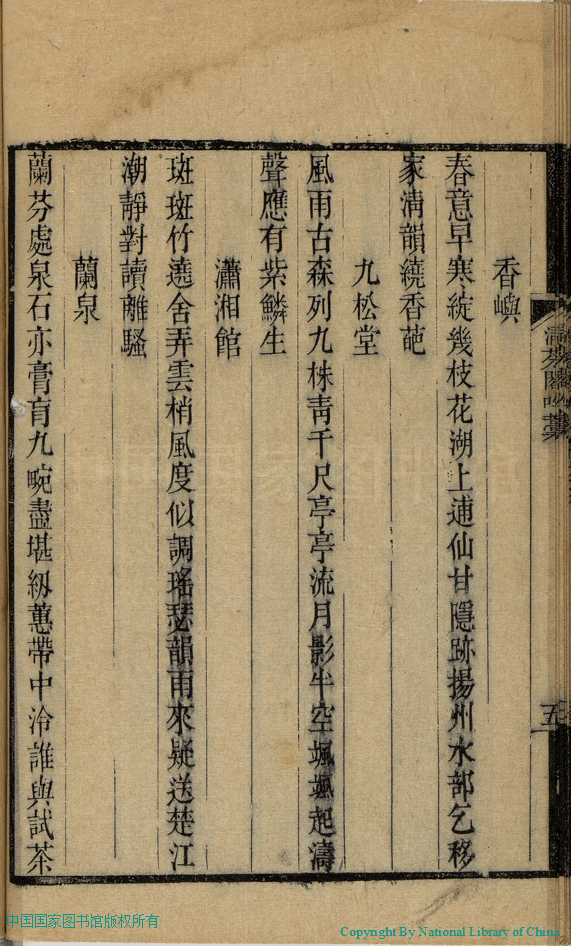 香嶼
春意早寒綻幾枝花湖上逋仙甘隱跡揚州水部乞移
家清韻繞香葩
九松堂
風雨古森列九株靑千尺亭亭流月影半空颯颯起濤
聲應有紫鱗生
瀟湘館
斑斑竹遶舍弄雲梢風度似調瑤瑟韻雨來疑送楚江
潮靜對讀離騷
蘭泉
蘭芬處泉石亦膏肓九畹盡堪紉蕙帶中泠誰與試茶
五
中国国家图书馆版权所有
Copyright By National Library of China